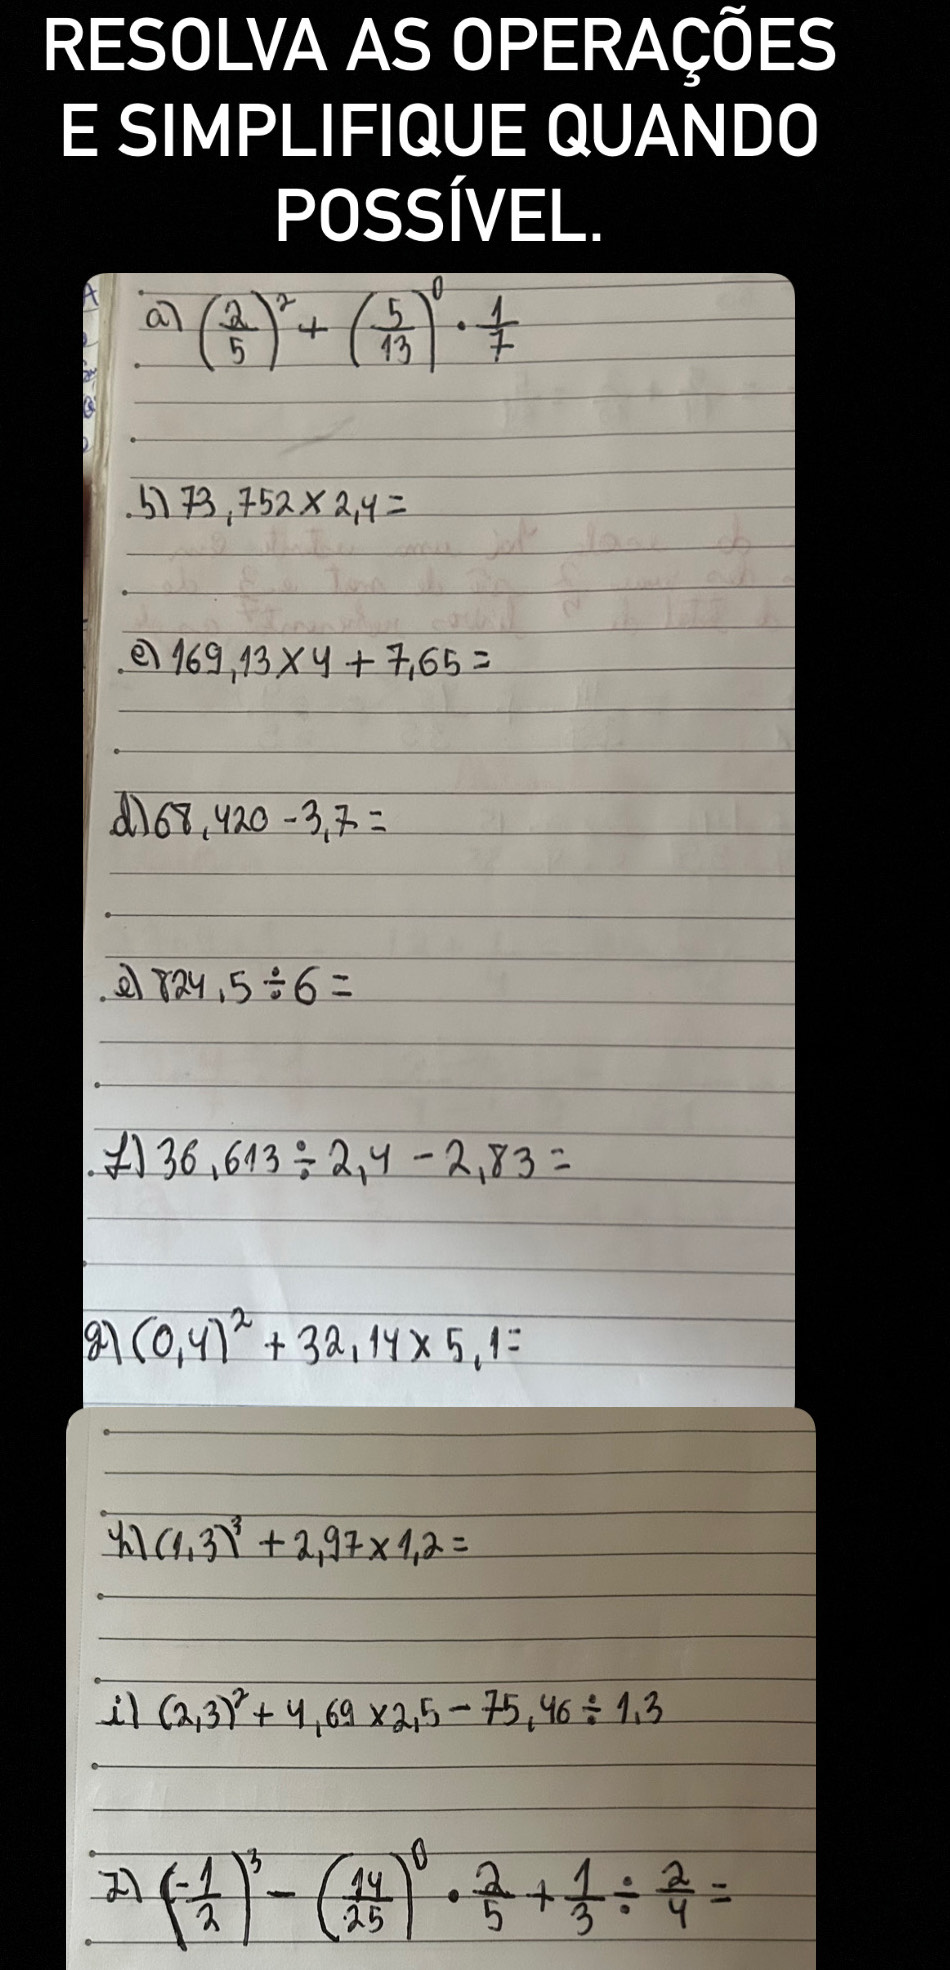 RESOLVA AS OPERAÇÕES
E SIMPLIFIQUE QUANDO
POSSÍVEL.
a) (2/5)² + (5/13)⁰ · 1/7
b) 73,752 × 2,4 =
c) 169,13 × 4 + 7,65 =
d) 68,420 - 3,7 =
e) 824,5 ÷ 6 =
f) 36,613 ÷ 2,4 - 2,83 =
g) (0,4)² + 32,14 × 5,1 =
h) (1,3)³ + 2,97 × 1,2 =
i) (2,3)² + 4,69 × 2,5 - 75,46 ÷ 1,3
j) (-1/2)³ - (14/25)⁰ · 2/5 + 1/3 ÷ 2/4 =